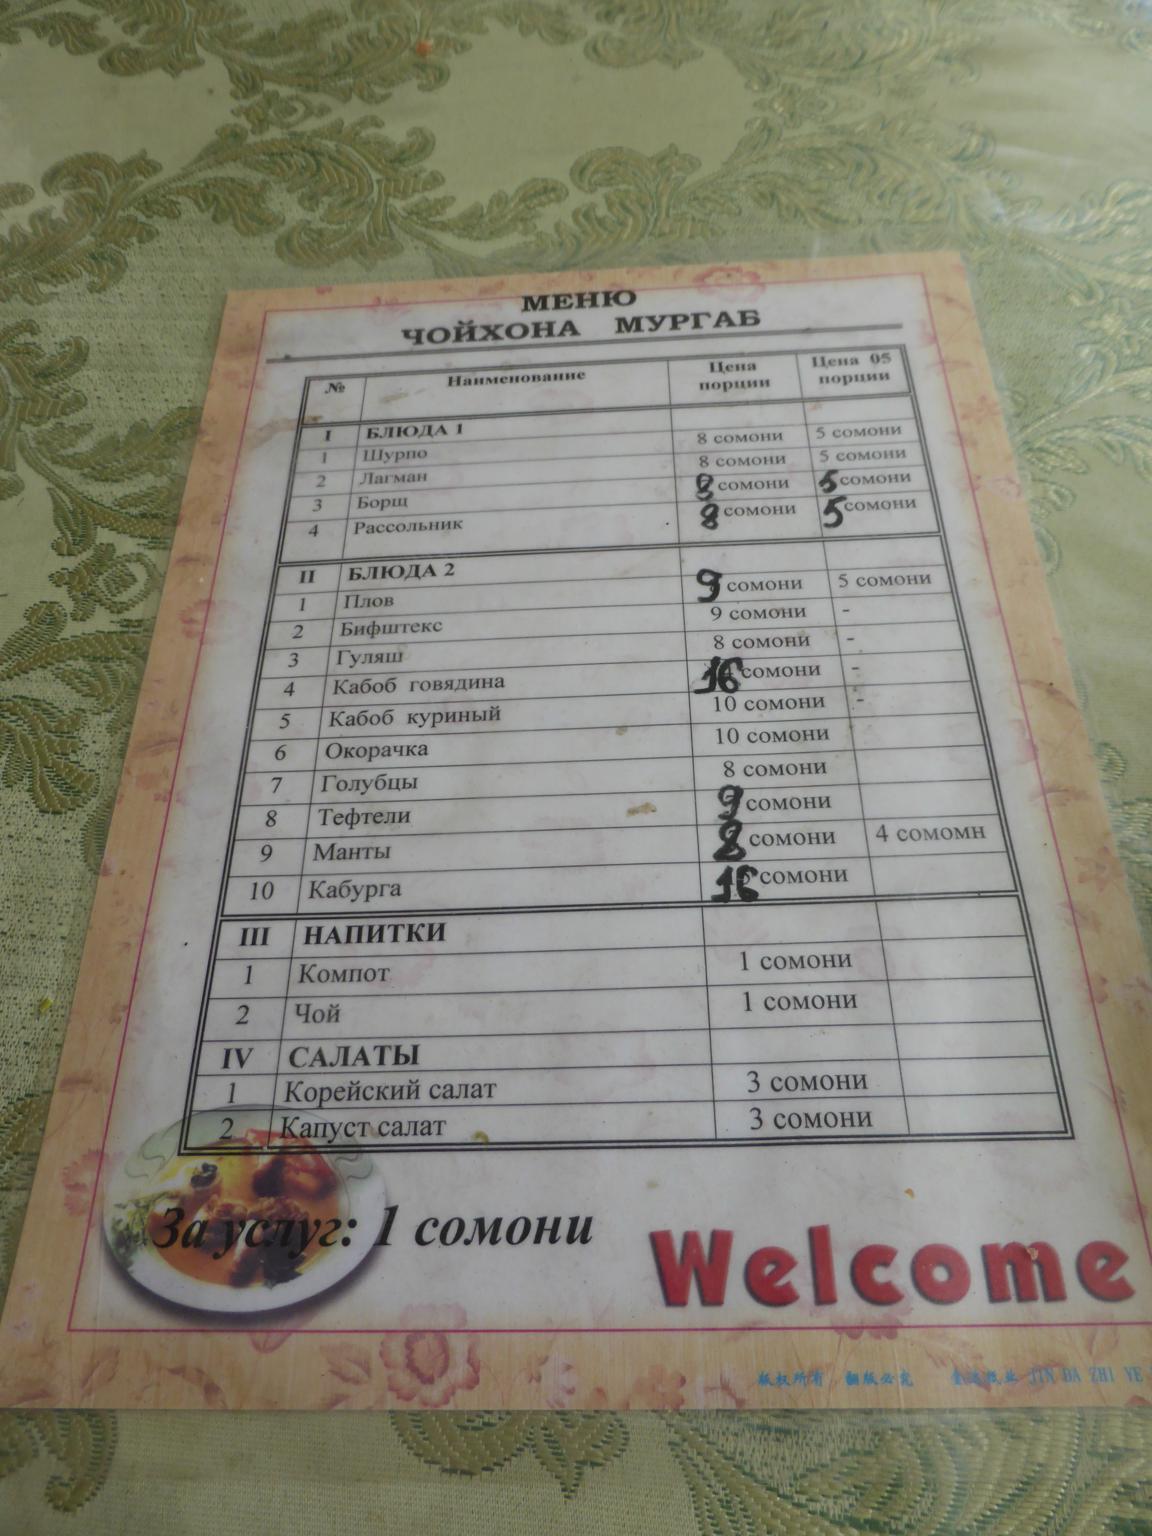 МЕНЮ
ЧОЙХОНА МУРГАБ
№ Наименование Цена порции Цена 05 порции
I БЛЮДА 1
1 Шурпо 8 сомони 5 сомони
2 Лагман 8 сомони 5 сомони
3 Борщ 8 сомони 5 сомони
4 Рассольник 8 сомони 5 сомони
II БЛЮДА 2
1 Плов 9 сомони 5 сомони
2 Бифштекс 9 сомони -
3 Гуляш 8 сомони -
4 Кабоб говядина 16 сомони -
5 Кабоб куриный 10 сомони -
6 Окорачка 10 сомони
7 Голубцы 8 сомони
8 Тефтели 9 сомони
9 Манты 8 сомони 4 сомомн
10 Кабурга 16 сомони
III НАПИТКИ
1 Компот 1 сомони
2 Чой 1 сомони
IV САЛАТЫ
1 Корейский салат 3 сомони
2 Капуст салат 3 сомони
За услуг: 1 сомони
Welcome
版权所有 翻版必究 JIN DA ZHI YE